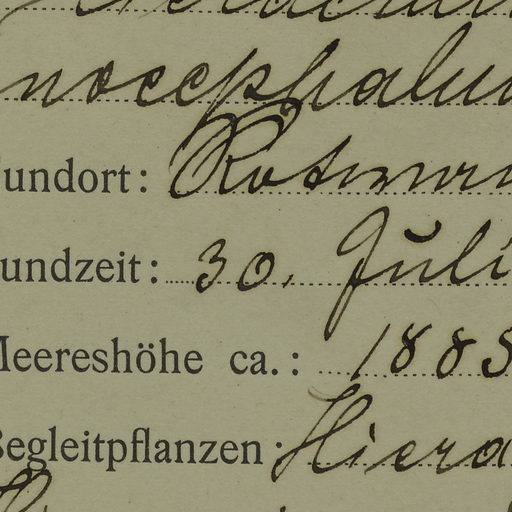 nocephalu
undort: Rotmur
undzeit: 30. Juli
Meereshöhe ca.: 1885
Begleitpflanzen: Hiera